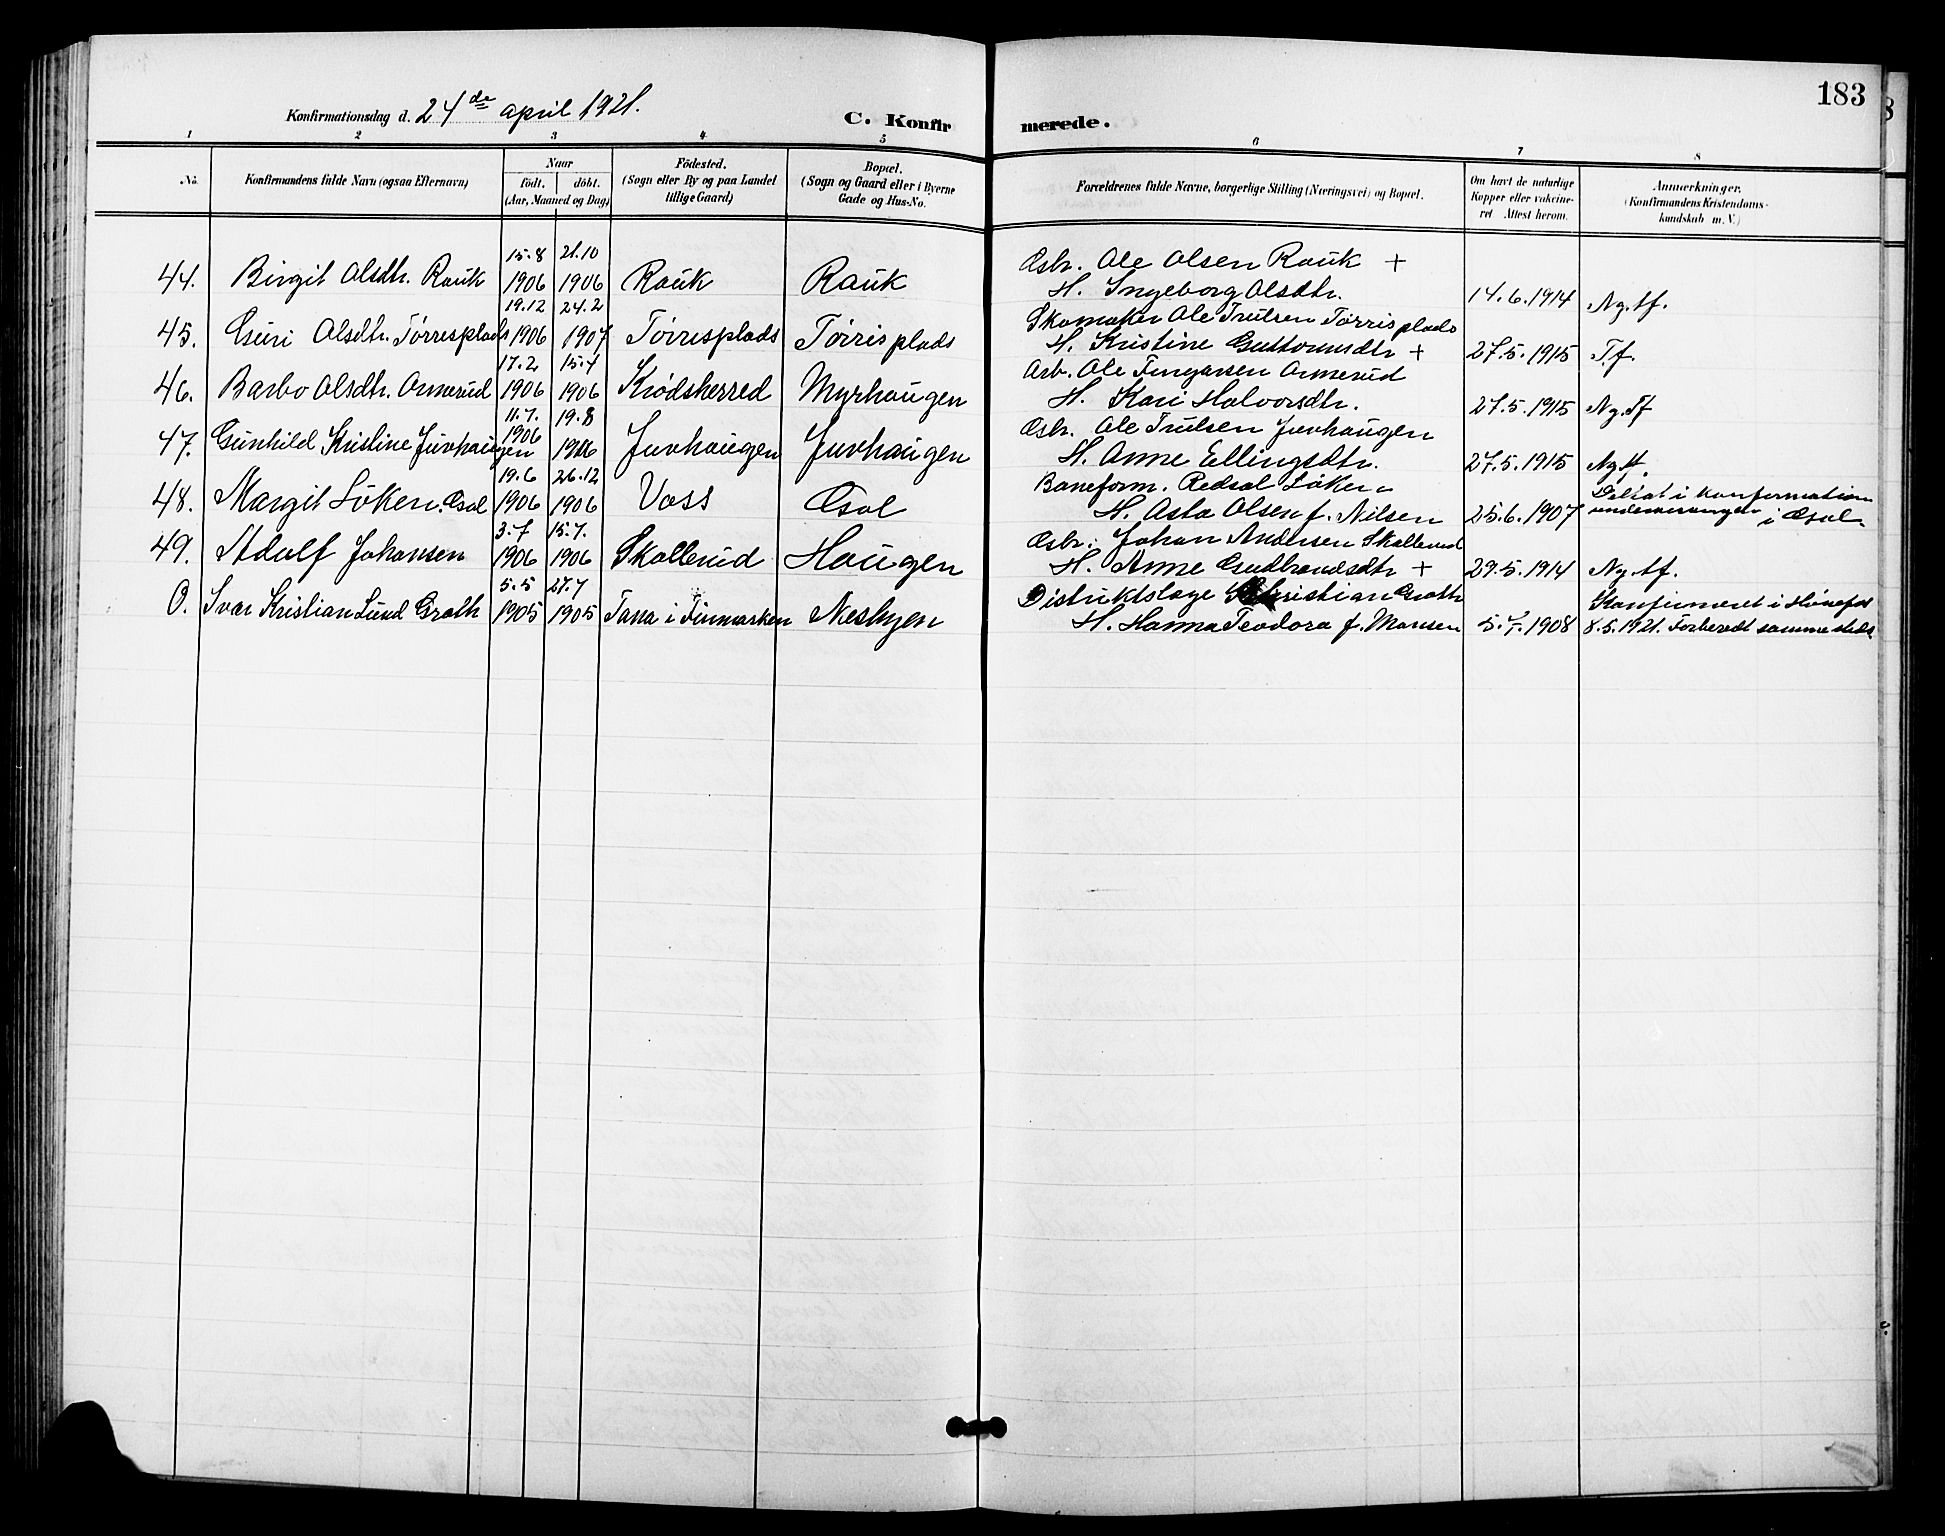 183
Konfirmationsdag d. 24de april 1921.
C. Konfirmerede.
1 2 3 4 5 6 7 8
No. Konfirmandens fulde Navn (ogsaa Efternavn) Naar födt. döbt. (Aar, Maaned og Dag) Födested. (Sogn eller By og paa Landet tillige Gaard) Bopæl. (Sogn og Gaard eller i Byerne Gade og Hus-No. Forældrenes fulde Navne, borgerlige Stilling (Næringsvei) og Bopæl. Om havt de naturlige Kopper eller vakcineret Attest herom. Anmærkninger. (Konfirmandens Kristendomskundskab m. V.)
15.8 21.10 Ole Olsen Rauk +
44. Birgit Olsdtr. Rauk 1906 1906 Rauk Rauk H. Ingeborg Olsdtr. 14.6.1914 Ng. tf.
19.12 24.2 Skomaker Ole Trulsen Tørrisplads
45. Guri Olsdtr. Tørresplads 1906 1907 Tørresplads Tørrisplads H. Kristine Guttormsdtr + 27.5.1915 T.f.
17.2 15.4 Arb. Ole Fingarsen Ormerud
46. Barbo Olsdtr. Ormerud 1906 1906 Krødsherred Myrhaugen H. Kari Halvorsdtr. 27.5.1915 Ng. Tf
11.7. 19.8 Ole Trulsen Juvhaugen
47. Gunhild Kristine Juvhaugen 1906 1906 Juvhaugen Juvhaugen H. Anne Ellingsdtr. 27.5.1915 Ng. tf.
19.6 26.12 Baneform. Løken Deltat i konfirmation
48. Margit Löken. Gol 1906 1906 Voss Gol H. Asta Olsen f. Nilsen 25.6.1907 i Gol
3.7 15.7. Johan Andersen Skallerud
49. Adolf Johansen 1906 1906 Skallerud Haugen H. Anne Gudbrandsdtr + 29.5.1914 Ng. tf.
5.5 27.7 Distriktslæge Christian Groth Konfirmeret i Hønefos
0. Ivar Kristian Lund Groth 1905 1905 Tana i Finmarken Nesbyen H. Hanna Teodora f. Monsen 1908 8.5.1921. Forberedt sammesteds